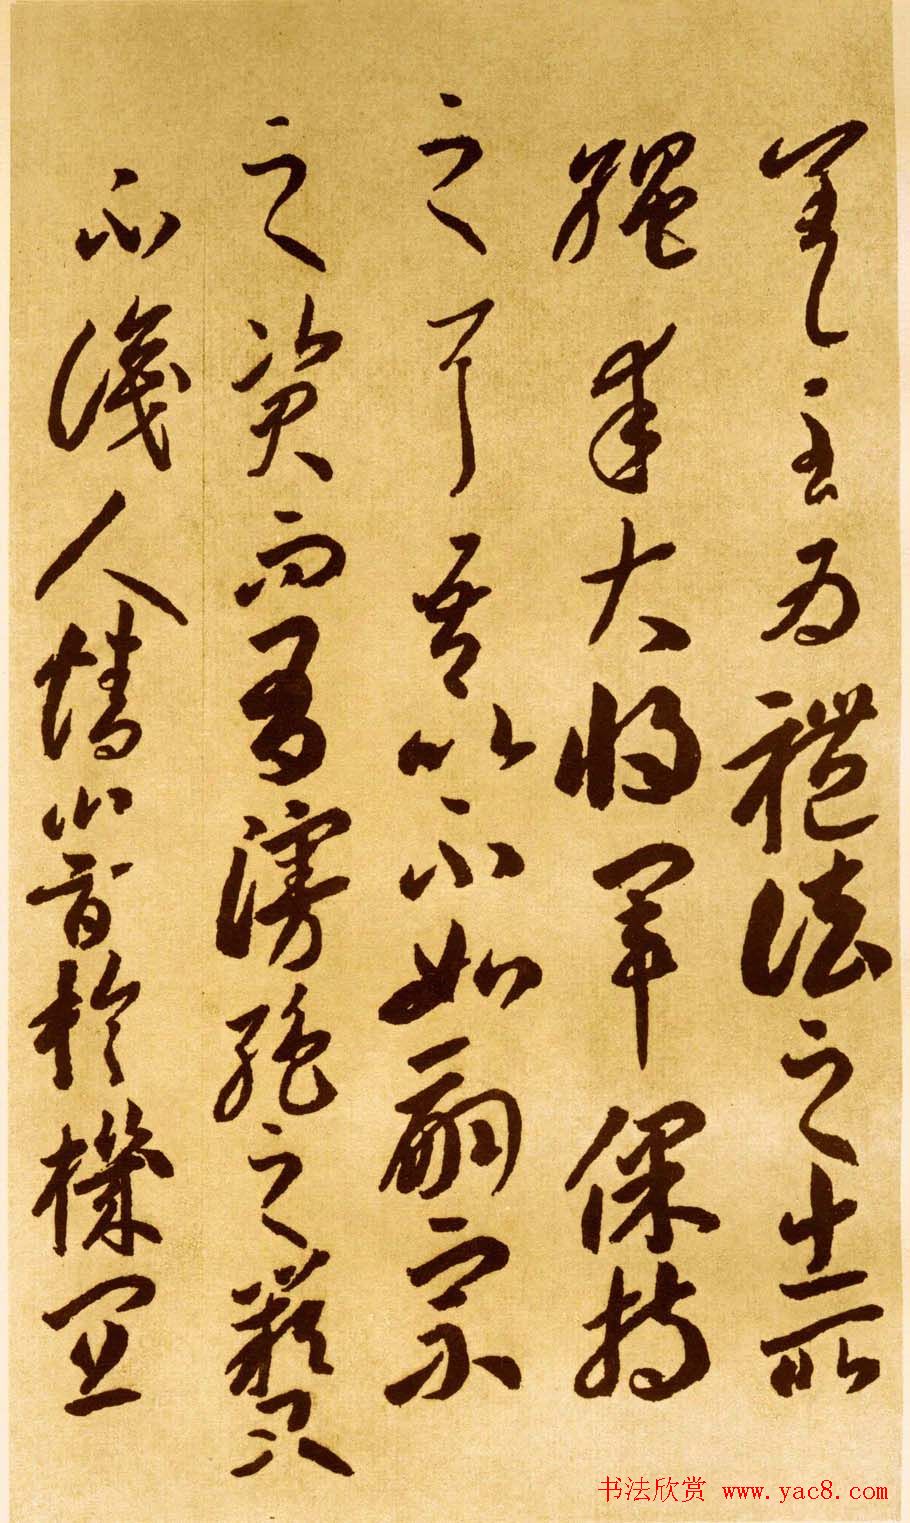 差耳至為禮法之士所
繩幸大將軍保持
之耳吾以不如嗣宗
之資而有慢弛之闕又
不識人情闇於機宜
书法欣赏 www.yac8.com